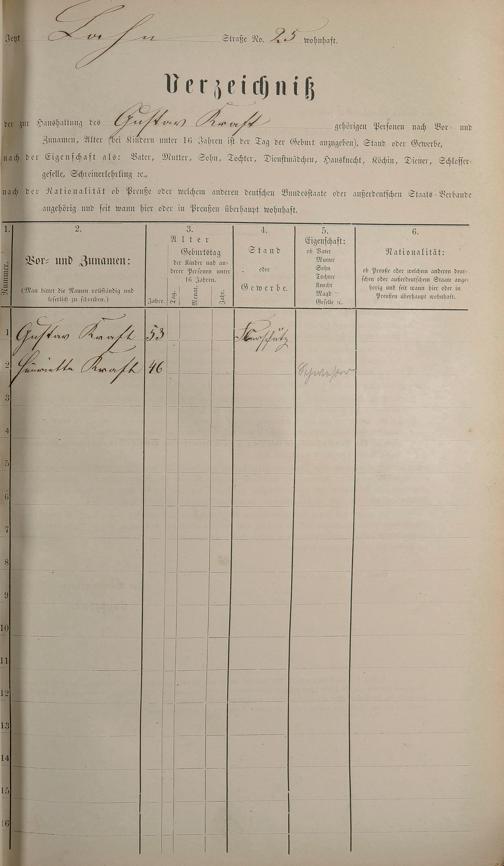 Jetzt Lahn Straße No. 25 wohnhaft.
Verzeichniß
der zur Haushaltung des Gustav Kraft gehörigen Personen nach Vor- und
Zunamen, Alter (bei Kindern unter 16 Jahren ist der Tag der Geburt anzugeben), Stand oder Gewerbe,
nach der Eigenschaft als: Vater, Mutter, Sohn, Tochter, Dienstmädchen, Hausknecht, Köchin, Diener, Schlosser-
geselle, Schreinerlehrling ꝛc.,
nach der Nationalität ob Preuße oder welchem anderen deutschen Bundesstaate oder außerdeutschen Staats-Verbande
angehörig und seit wann hier oder in Preußen überhaupt wohnhaft.
1.
Nummer.
2.
Vor- und Zunamen:
(Man bittet die Namen vollständig und
leserlich zu schreiben.)
3.
Alter
Geburtstag
der Kinder und an-
derer Personen unter
16 Jahren.
Jahre.
Tag.
Monat.
Jahr.
4.
Stand
oder
Gewerbe.
5.
Eigenschaft:
ob Vater
Mutter
Sohn
Tochter
Knecht
Magd
Geselle ꝛc.
6.
Nationalität:
ob Preuße oder welchem anderen deut-
schen oder außerdeutschen Staate ange-
hörig und seit wann hier oder in
Preußen überhaupt wohnhaft.
1 Gustav Kraft 53
2 Henriette Kraft 46 Schwester
3
4
5
6
7
8
9
10
11
12
13
14
15
16